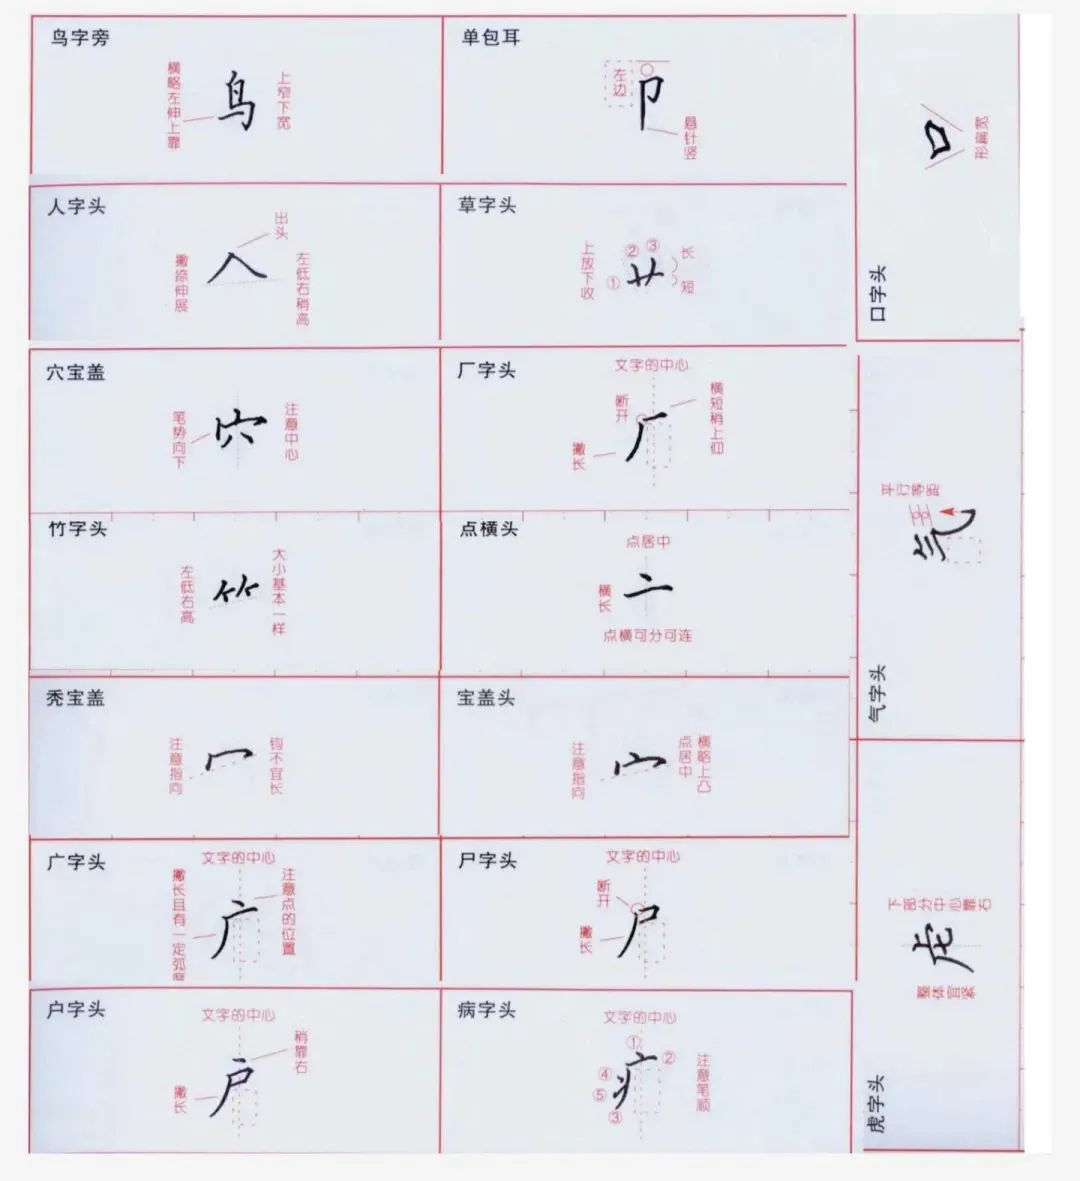 鸟字旁
横略左伸上靠
鸟
上窄下宽
单包耳
左边
卩
悬针竖
人字头
出头
撇捺伸展
人
左低右稍高
草字头
上放下收
①
②
③
艹
长
短
穴宝盖
笔势向下
穴
注意中心
厂字头
文字的中心
断开
横短稍上仰
撇长
厂
竹字头
左低右高
大小基本一样
点横头
点居中
长横
亠
点横可分可连
秃宝盖
注意指向
冖
钩不宜长
宝盖头
注意指向
宀
点居中
横略上凸
广字头
文字的中心
撇长且有一定弧
广
注意点的位置
尸字头
文字的中心
断开
长撇
尸
户字头
文字的中心
稍靠右
长撇
户
病字头
文字的中心
①
②
④
⑤
③
疒
注意笔顺
口字头
口
形扁宽
气字头
平行等距
气
虎字头
下部分中心靠右
虍
整体宜紧